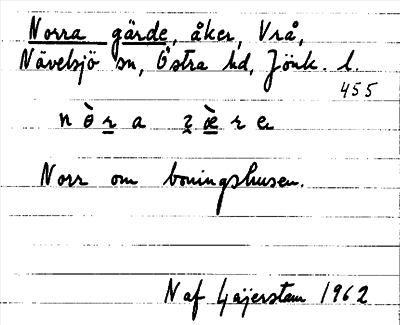 Norra gärde, åker, Vrå,
Nävelsjö sn, Östra hd, Jönk. l.
455
Norr om boningshusen.
Naf Gajerstam 1962